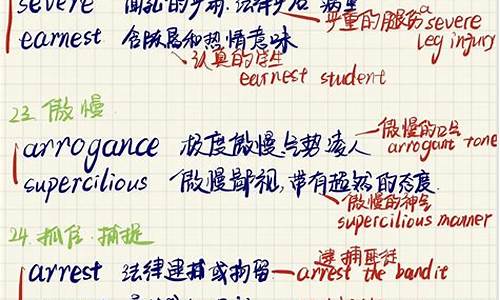 severe
严重的腿伤 a severe leg injury
earnest 含
热情意味
认真的学生
earnest student
23. 傲慢
arrogance 极度傲慢.气势凌人
傲慢的口气
arrogant tone
supercilious 傲慢鄙视,带有超然的态度.
傲慢的神气
supercilious manner
24. 抓住.捕捉
arrest 法律逮捕或拘留
逮捕匪徒
arrest the bandit